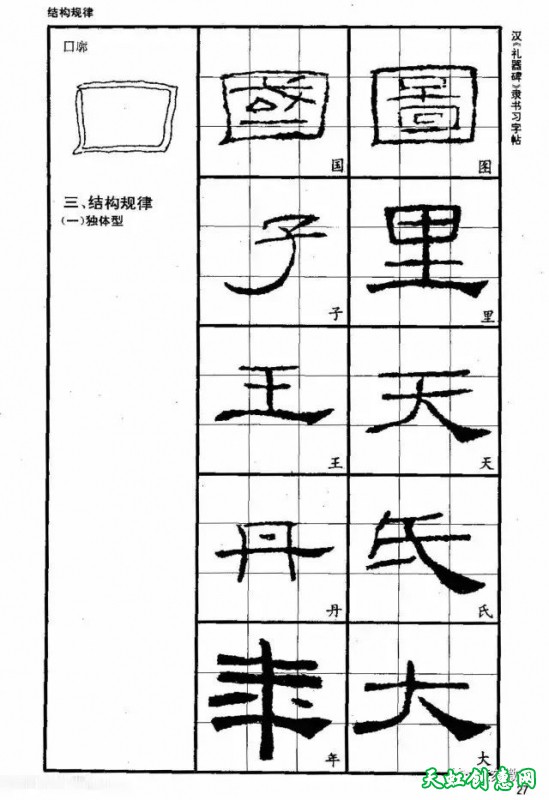 结构规律
汉《礼器碑》隶书习字帖
囗廓
三、结构规律
(一)独体型
國 圖
国 图
子 里
子 里
王 天
王 天
丹 氏
丹 氏
年 大
年 大
天虹创意网
27